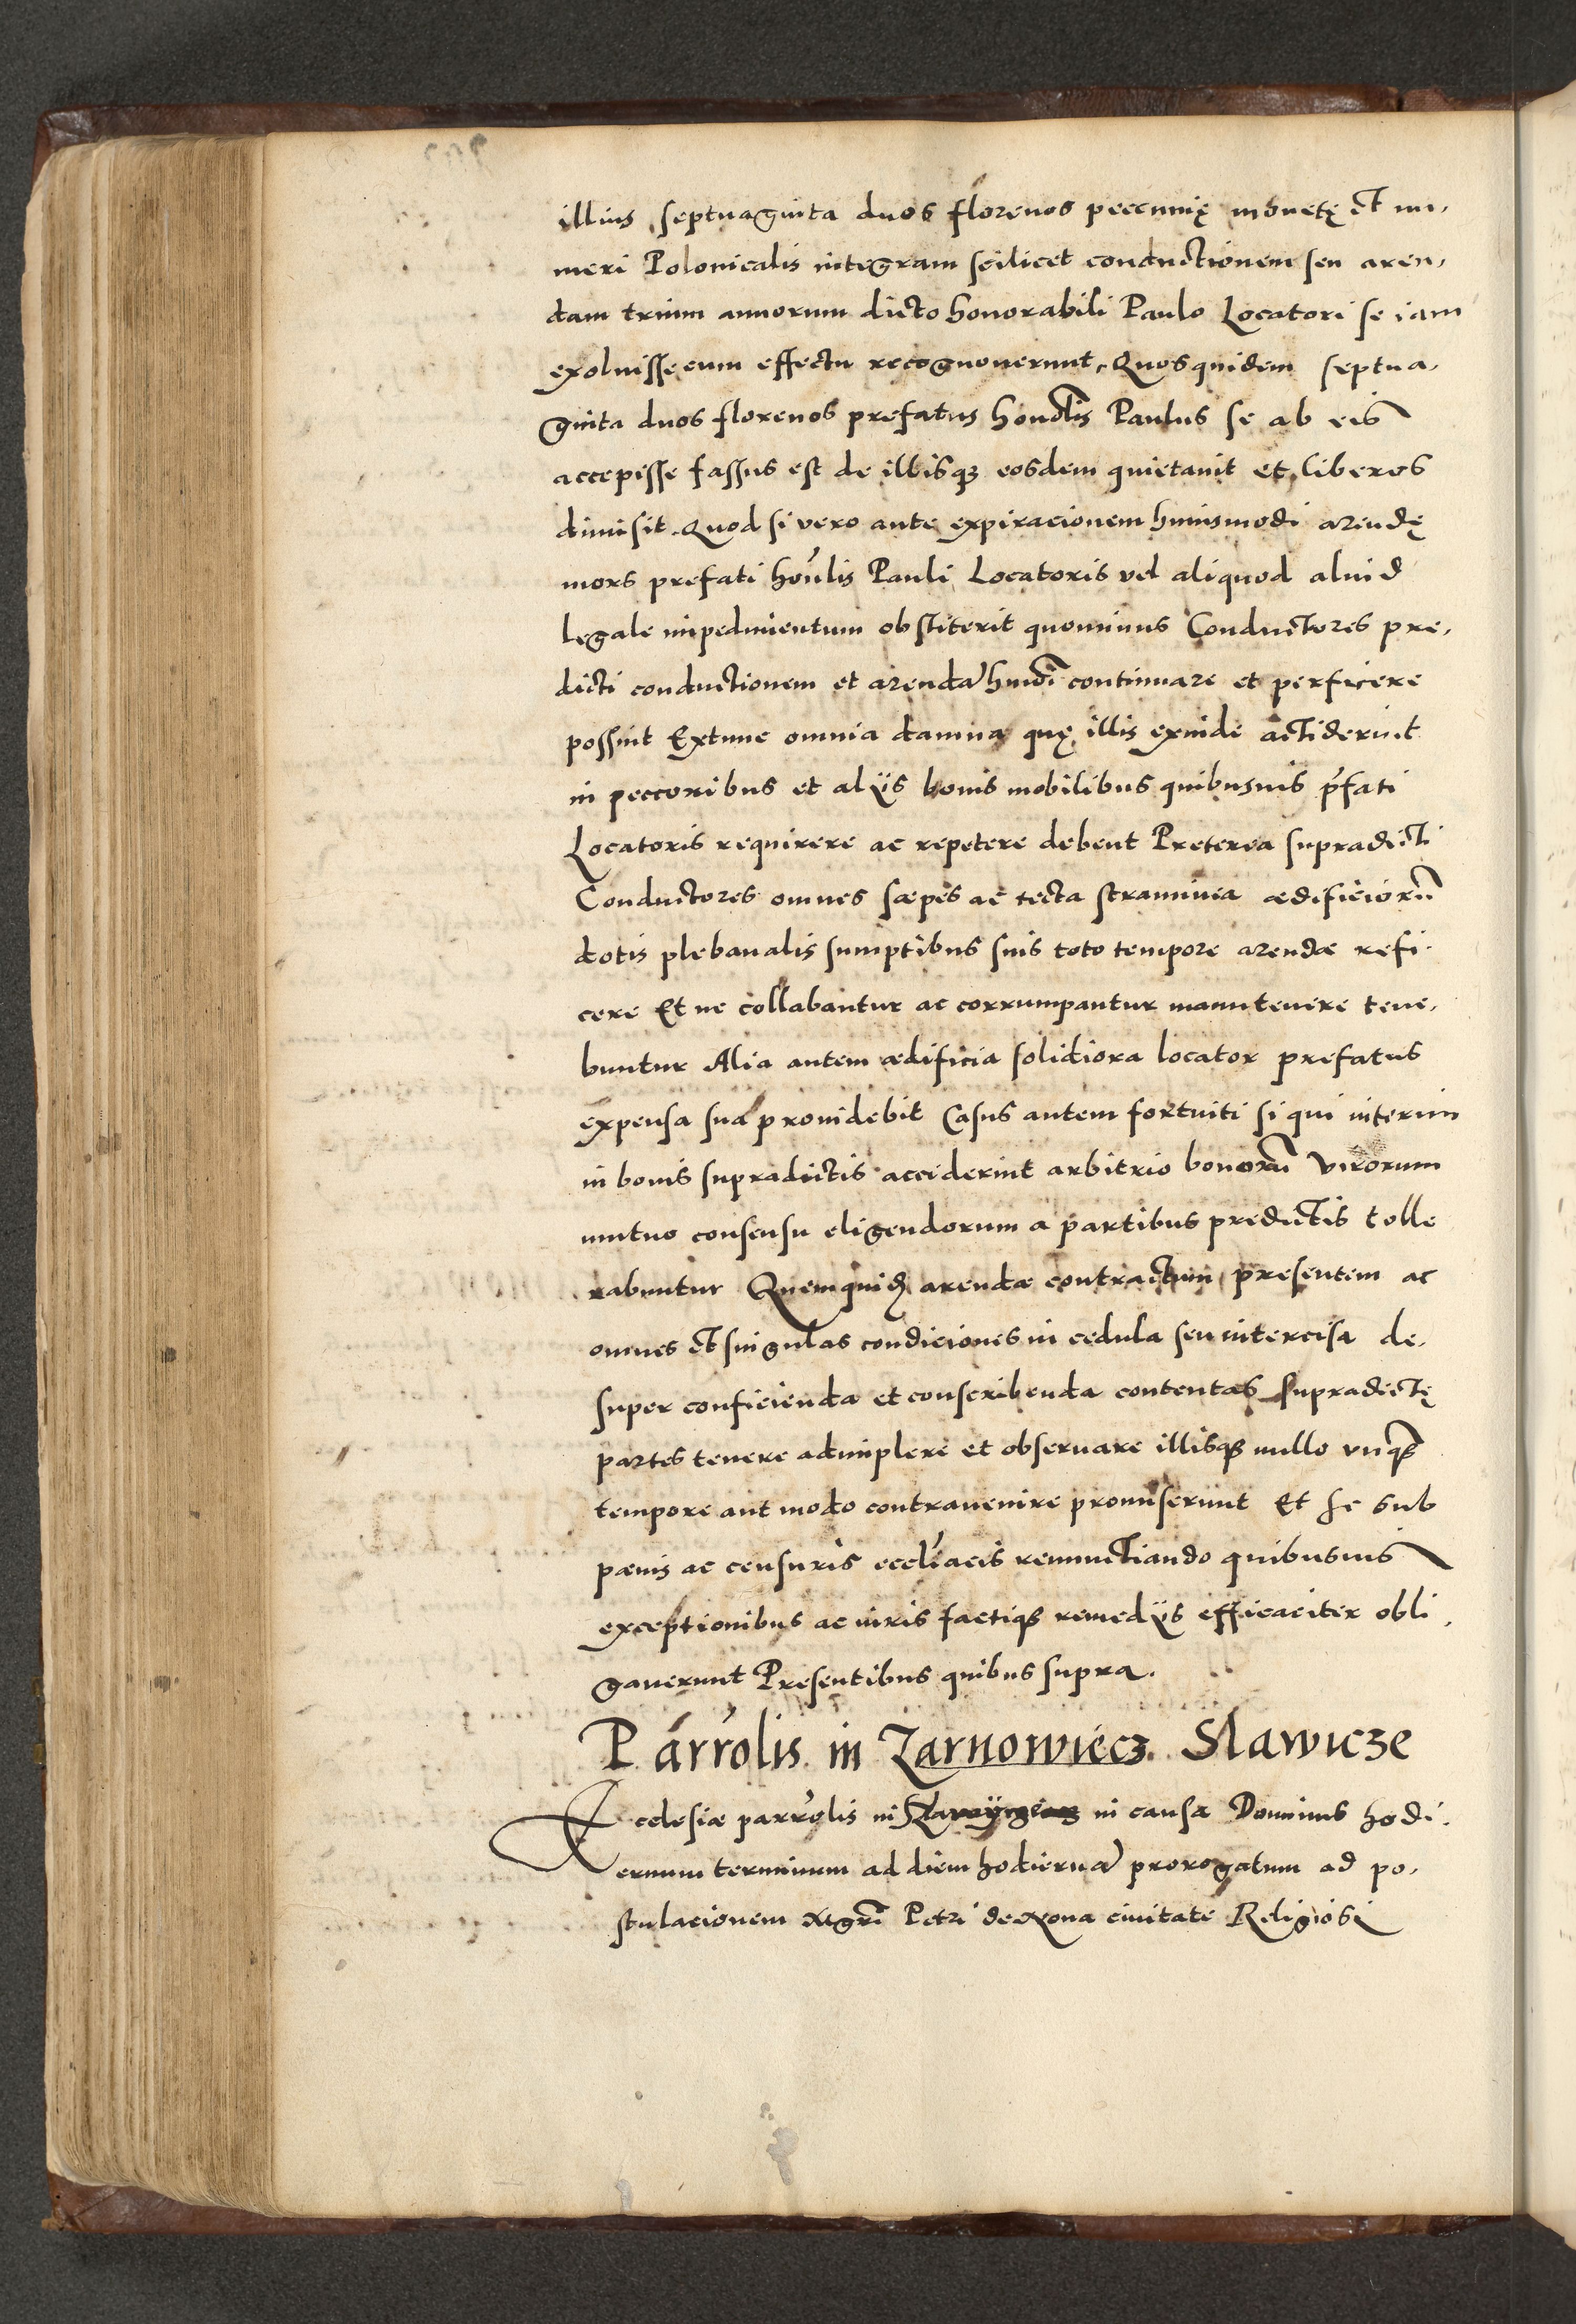 illius septuaginta duos florenos peccunię monetę et nu,
meri Polonicalis integram scilicet conductionem seu aren,
dam trium annorum dicto honorabili Paulo Locatori se iam
exoluisse cum effectu recognouerunt, Quos quidem septua,
ginta duos florenos prefatus honolis Paulus se ab eis
accepisse fassus est de illisqȝ eosdem quietauit et liberos
dimisit. Quod si vero ante expiracionem huiusmodi arendę
mors prefati honlis Pauli Locatoris vel aliquod aliud
legale impedimentum obstiterit quominus Conductores pre,
dicti conductionem et arendā hmoī continuare et perficere
possint Extunc omnia damna quę illis exinde acciderint
in peccoribus et alijs bonis mobilibus quibusuis pfati
Locatoris requirere ac repetere debent Preterea supradicti
Conductores omnes sæpes ac tecta straminea ædificiorū
dotis plebanalis sumptibus suis toto tempore arendæ refi,
cere Et ne collabantur ac corrumpantur manutenere tene,
buntur Alia autem ædificia solidiora locator prefatus
expensa sua prouidebit Casus autem fortuiti si qui interim
in bonis supradictis acciderint arbitrio bonorū virorum
mutuo consensu eligendorum a partibus predictis tolle
rabuntur Quemquid arendæ contractum presentem ac
omnes et singulas condiciones in cedula seu intercisa de,
super conficienda et conscribenda contentas supradictę
partes tenere adimplere et obseruare illisqȝ nullo vnqȝ
tempore aut modo contrauenire promiserunt Et se sub
pænis ac censuris eccliacis renunctiando quibusuis
exceptionibus ac iuris factiqȝ remedijs efficaciter obli,
gauerunt Presentibus quibus supra.
Parrolis in Zarnowiecz. Slawicze
Ecclesiæ parrolis in in causa Dominus hodi,
ernum terminum ad diem hodiernā prorogatum ad po,
stulacionem Mgrī Petri de civitate Religiosi